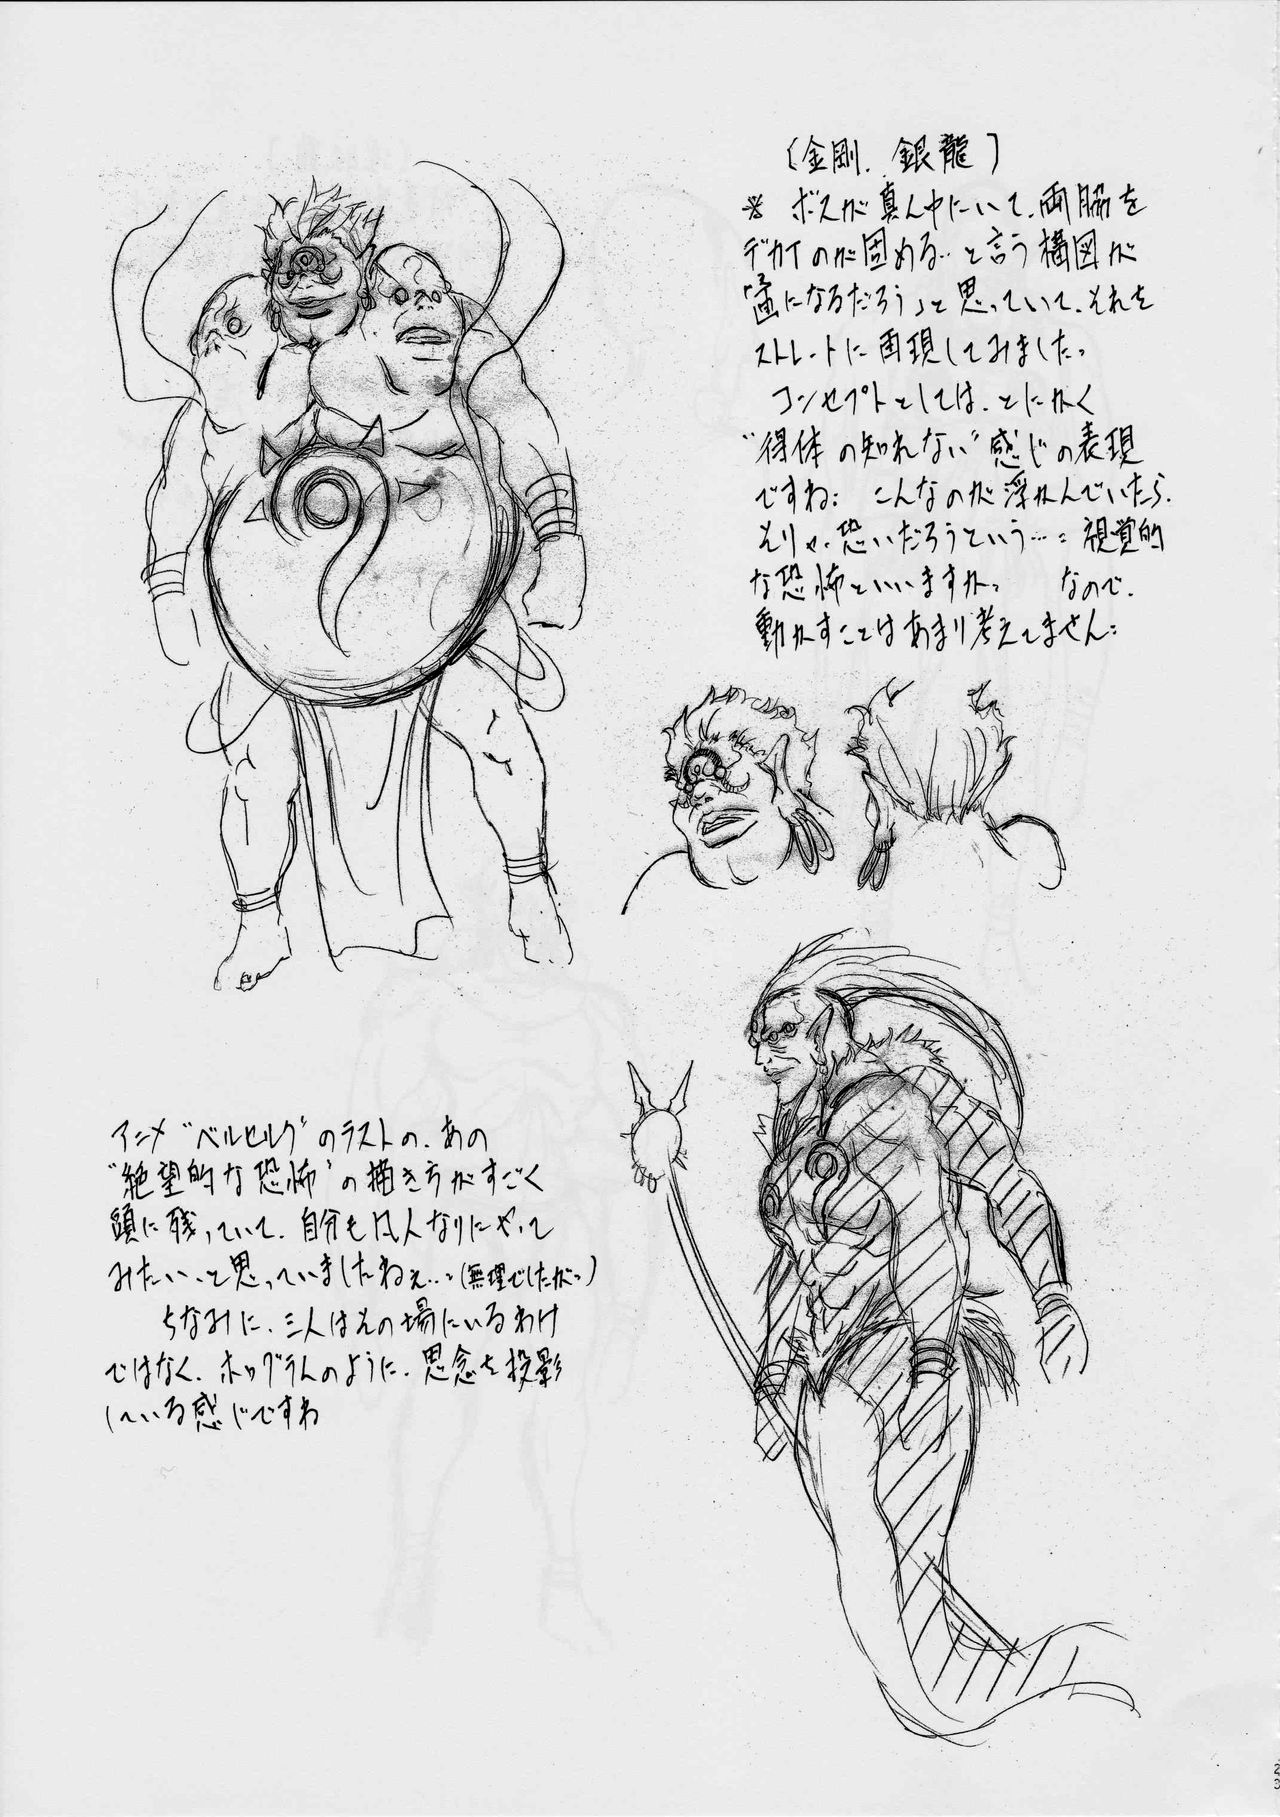 (金剛．銀龍)
※ ボスが真ん中にいて、両脇を
デカイのが固める…と言う構図が
「画になるだろう」と思っていて、それを
ストレートに再現してみました。
コンセプトとしては、とにかく
"得体の知れない"感じの表現
ですね。こんなのが浮かんでいたら、
そりゃ、恐いだろうという…。視覚的
な恐怖といいますか。なので、
動かすことはあまり考えてません。
アニメ"ベルセルク"のラストの、あの
"絶望的な恐怖"の描き方がすごく
頭に残っていて、自分も凡人なりにやって
みたい、と思っていましたねぇ…。(無理でしたが。)
ちなみに、三人はその場にいるわけ
ではなく、ホログラムのように、思念を投影
している感じですね